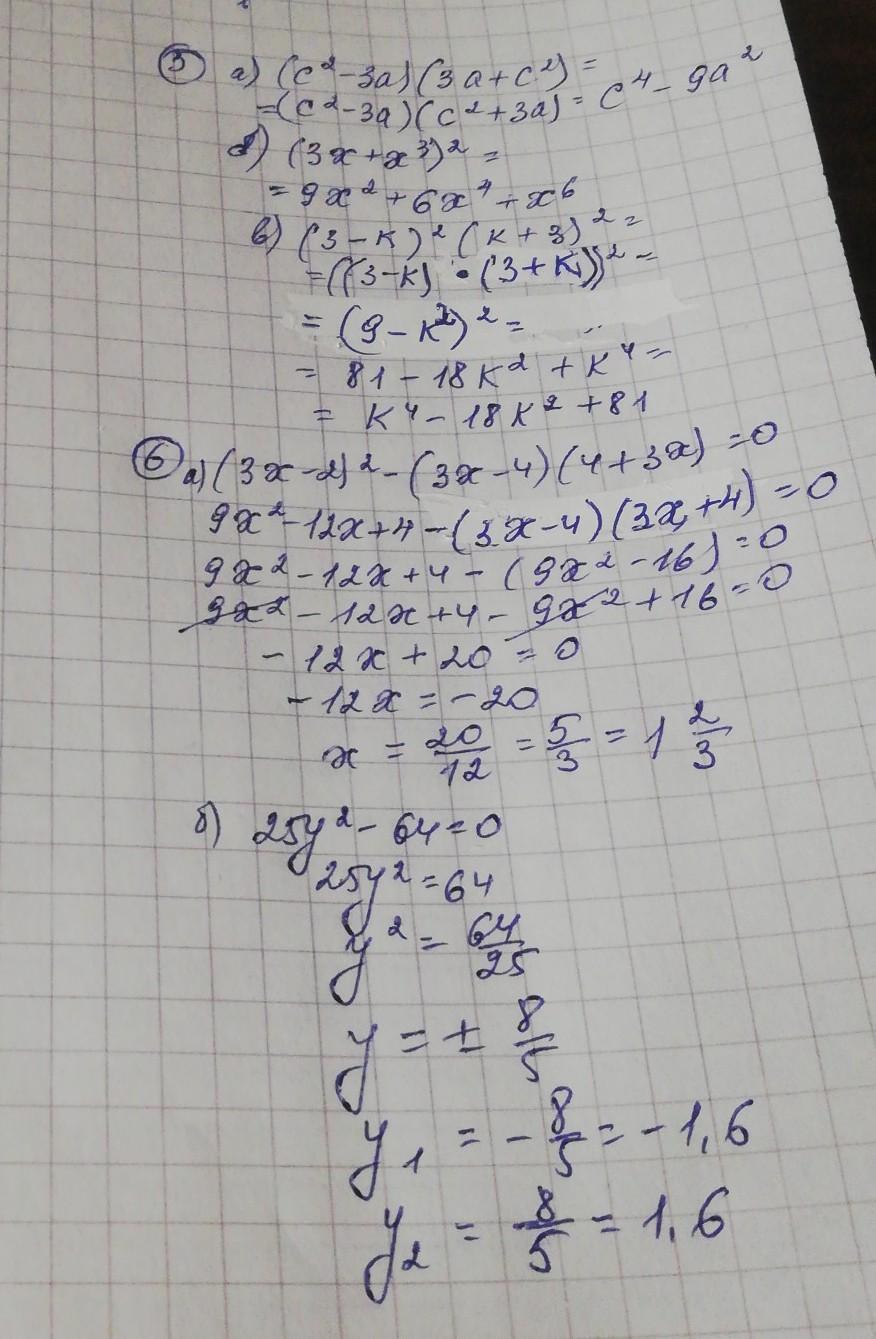 5 а) (c²-3a)(3a+c²) =
=(c²-3a)(c²+3a) = c⁴- 9a²
б) (3x+x³)² =
= 9x² + 6x⁴ + x⁶
в) (3-к)² (к+3)² =
=((3-к) • (3+к))² =
= (9-к²)² =
= 81 - 18к² + к⁴ =
= к⁴ - 18к² + 81
6 а) (3x-2)² - (3x-4)(4+3x) = 0
9x²-12x+4 - (3x-4)(3x+4) = 0
9x² - 12x+4 - (9x²-16) = 0
9x² - 12x+4 - 9x² + 16 = 0
- 12x + 20 = 0
- 12x = - 20
x = 20/12 = 5/3 = 1 2/3
б) 25y² - 64 = 0
25y² = 64
y² = 64/25
y = ± 8/5
y₁ = - 8/5 = - 1,6
y₂ = 8/5 = 1,6